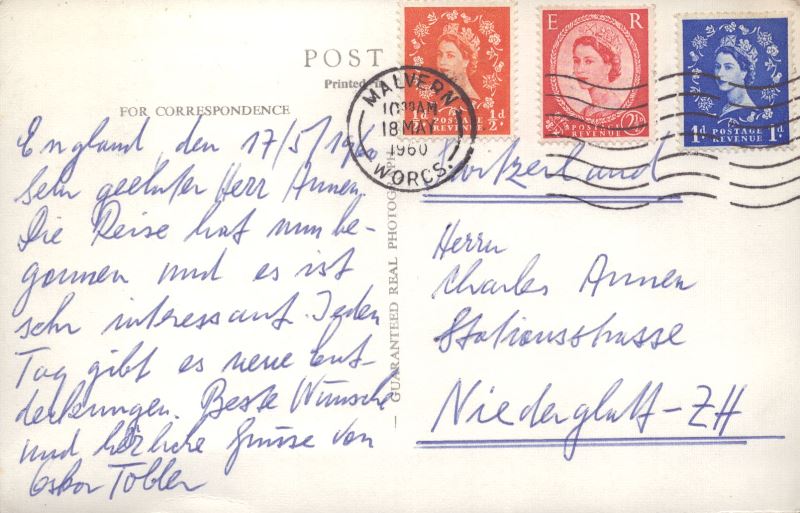 POST
Printed
FOR CORRESPONDENCE
MALVERN
10 30 AM
18 MAY
1960
WORCS.
½d ½d
POSTAGE
REVENUE
E R
2½d
POSTAGE
REVENUE
1d 1d
POSTAGE
REVENUE
GUARANTEED REAL PHOTOGRAPH
England, den 17/5/1960
Sehr geehrter Herr Annen.
Die Reise hat nun be-
gonnen und es ist
sehr interessant. Jeden
Tag gibt es neue Ent-
deckungen. Beste Wünsche
und herzliche Grüsse von
Oskar Tobler
Switzerland
Herrn
Charles Annen
Stationsstrasse
Niederglatt-ZH